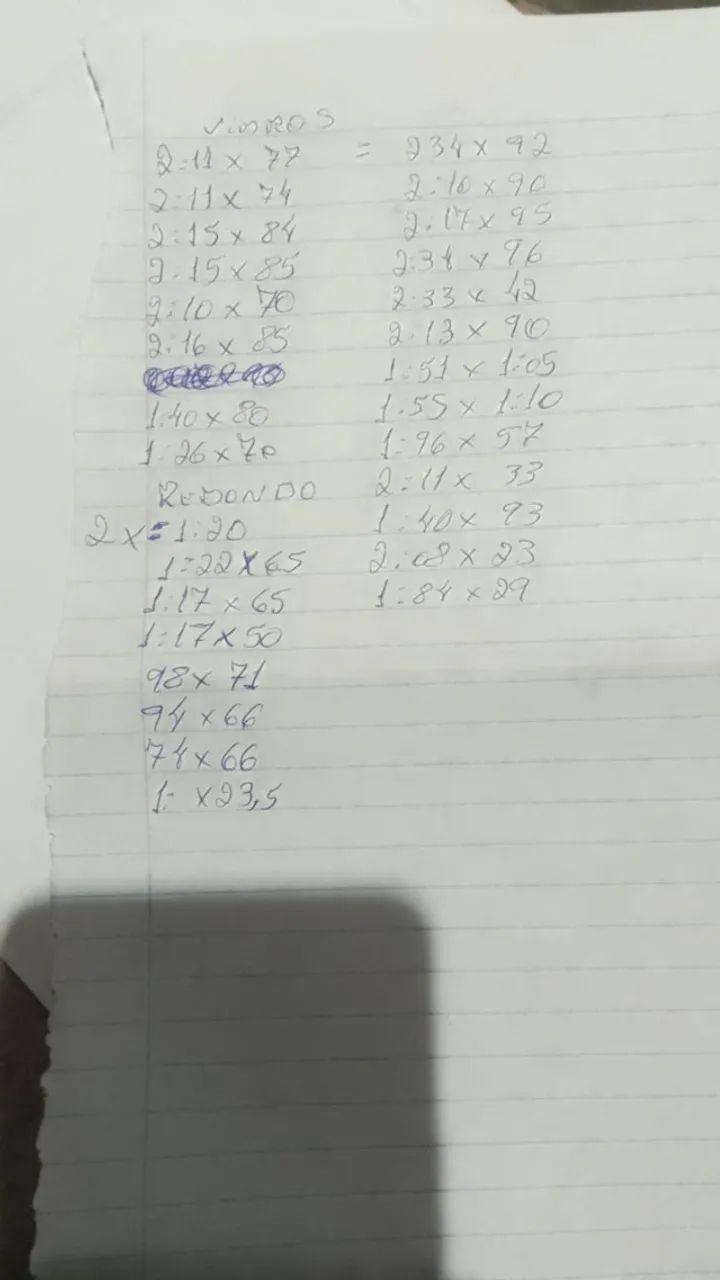 VIDROS
2:11 x 77 = 234 x 92
2:11 x 74 2:10 x 90
2:15 x 84 2.17 x 95
2.15 x 85 2:34 x 96
2:10 x 70 2:33 x 42
2:16 x 85 2.13 x 90
1:51 x 1:05
1:40 x 80 1.55 x 1:10
1:26 x 70 1:96 x 57
REDONDO 2:11 x 33
2 x = 1:20 1:40 x 93
1=22 x 65 2:08 x 23
1:17 x 65 1:84 x 29
1:17 x 50
98 x 71
94 x 66
74 x 66
1- x 23,5